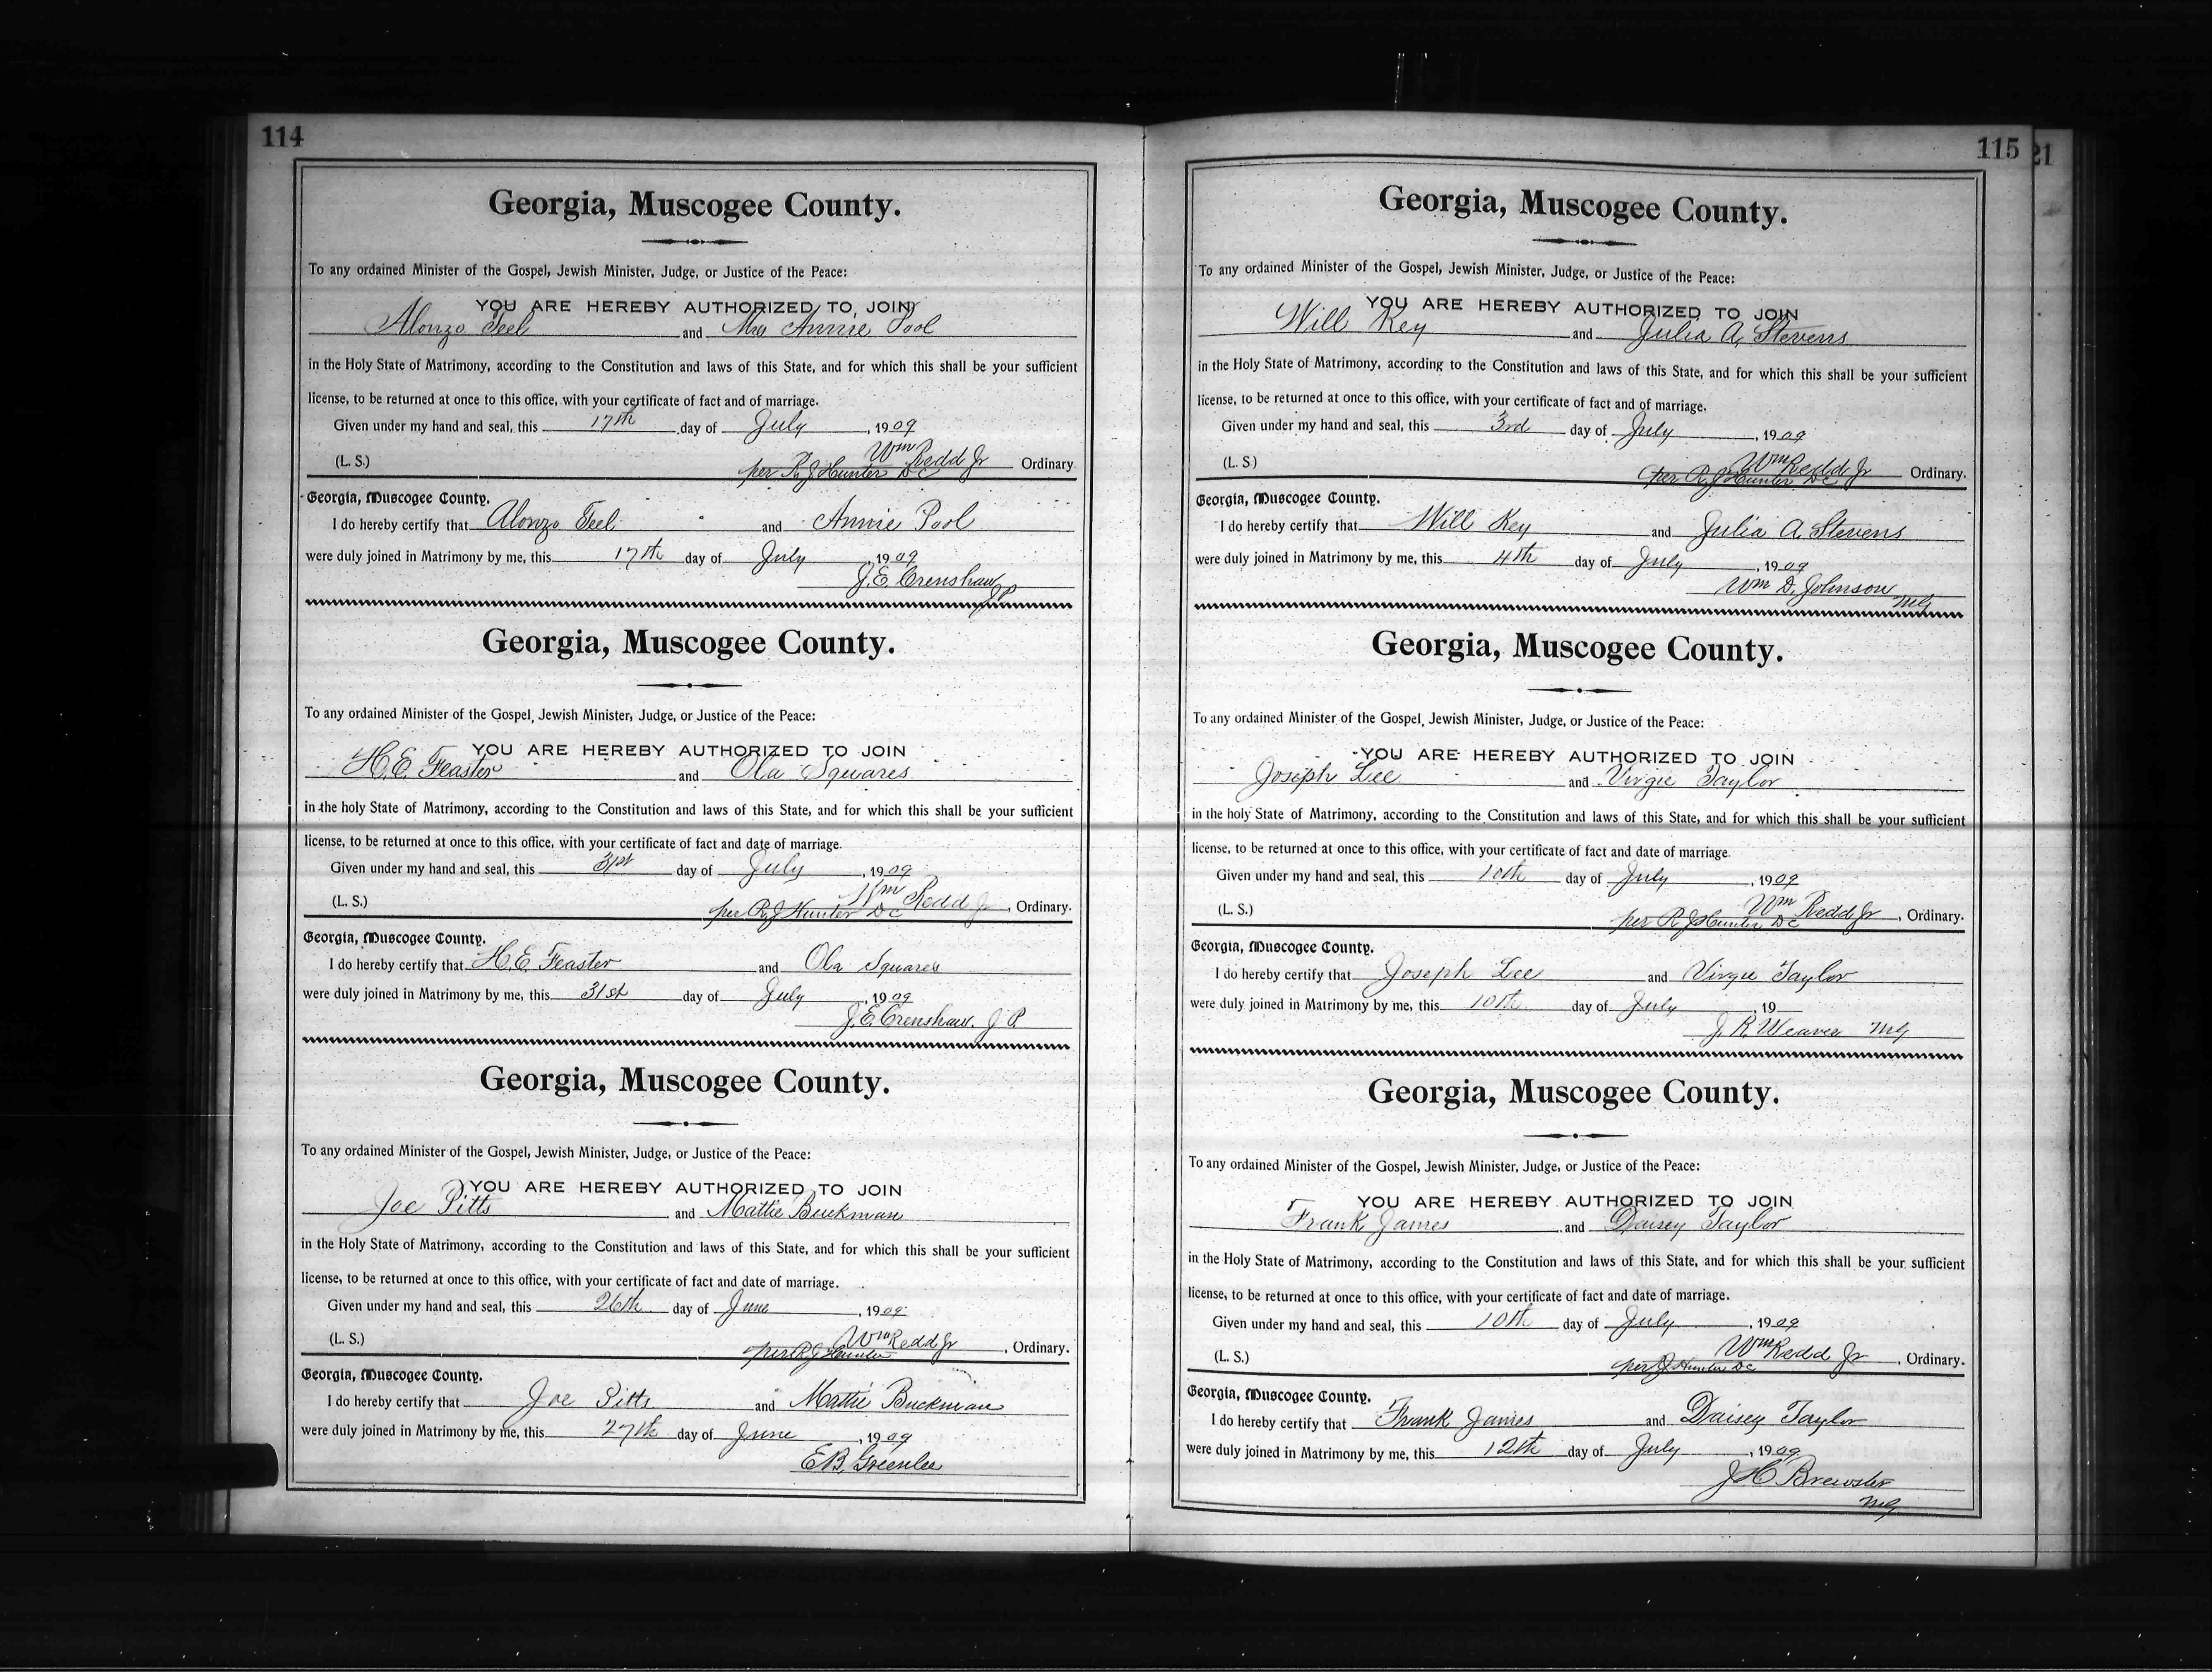 114
Georgia, Muscogee County.
To any ordained Minister of the Gospel, Jewish Minister, Judge, or Justice of the Peace:
YOU ARE HEREBY AUTHORIZED TO JOIN
Alonzo Teel and Mrs Annie Pool
in the Holy State of Matrimony, according to the Constitution and laws of this State, and for which this shall be your sufficient
license, to be returned at once to this office, with your certificate of fact and of marriage.
Given under my hand and seal, this 17th day of July, 1909
(L. S.) Wm Redd Jr Ordinary.
per R J Hunter DC
Georgia, Muscogee County.
I do hereby certify that Alonzo Teel and Annie Pool
were duly joined in Matrimony by me, this 17th day of July, 1909
J. E. Crenshaw
JP
Georgia, Muscogee County.
To any ordained Minister of the Gospel, Jewish Minister, Judge, or Justice of the Peace:
YOU ARE HEREBY AUTHORIZED TO JOIN
H. E. Feaster and Ola Squares
in the holy State of Matrimony, according to the Constitution and laws of this State, and for which this shall be your sufficient
license, to be returned at once to this office, with your certificate of fact and date of marriage.
Given under my hand and seal, this 31st day of July, 1909
(L. S.) Wm Redd Jr, Ordinary.
per R J Hunter DC
Georgia, Muscogee County.
I do hereby certify that H. E. Feaster and Ola Squares
were duly joined in Matrimony by me, this 31st day of July, 1909
J. E. Crenshaw. J P.
Georgia, Muscogee County.
To any ordained Minister of the Gospel, Jewish Minister, Judge, or Justice of the Peace:
YOU ARE HEREBY AUTHORIZED TO JOIN
Joe Pitts and Mattie Buckman
in the Holy State of Matrimony, according to the Constitution and laws of this State, and for which this shall be your sufficient
license, to be returned at once to this office, with your certificate of fact and date of marriage.
Given under my hand and seal, this 26th day of June, 1909
(L. S.) Wm Redd Jr, Ordinary.
per R J Hunter
Georgia, Muscogee County.
I do hereby certify that Joe Pitts and Mattie Buckman
were duly joined in Matrimony by me, this 27th day of June, 1909
E. B. Greenlee
115
21
Georgia, Muscogee County.
To any ordained Minister of the Gospel, Jewish Minister, Judge, or Justice of the Peace:
YOU ARE HEREBY AUTHORIZED TO JOIN
Will Key and Julia A. Stevens
in the Holy State of Matrimony, according to the Constitution and laws of this State, and for which this shall be your sufficient
license, to be returned at once to this office, with your certificate of fact and of marriage.
Given under my hand and seal, this 3rd day of July, 1909
(L. S) Wm Redd Jr Ordinary.
per R J Hunter DC
Georgia, Muscogee County.
I do hereby certify that Will Key and Julia A. Stevens
were duly joined in Matrimony by me, this 4th day of July, 1909
Wm D. Johnson
MG
Georgia, Muscogee County.
To any ordained Minister of the Gospel, Jewish Minister, Judge, or Justice of the Peace:
YOU ARE HEREBY AUTHORIZED TO JOIN
Joseph Lee and Virgie Taylor
in the holy State of Matrimony, according to the Constitution and laws of this State, and for which this shall be your sufficient
license, to be returned at once to this office, with your certificate of fact and date of marriage.
Given under my hand and seal, this 10th day of July, 1909
(L. S.) Wm Redd Jr, Ordinary.
per R J Hunter DC
Georgia, Muscogee County.
I do hereby certify that Joseph Lee and Virgie Taylor
were duly joined in Matrimony by me, this 10th day of July, 19
J. R. Weaver MG
Georgia, Muscogee County.
To any ordained Minister of the Gospel, Jewish Minister, Judge, or Justice of the Peace:
YOU ARE HEREBY AUTHORIZED TO JOIN
Frank James and Daisey Taylor
in the Holy State of Matrimony, according to the Constitution and laws of this State, and for which this shall be your sufficient
license, to be returned at once to this office, with your certificate of fact and date of marriage.
Given under my hand and seal, this 10th day of July, 1909
(L. S.) Wm Redd Jr, Ordinary.
per RJ Hunter DC
Georgia, Muscogee County.
I do hereby certify that Frank James and Daisey Taylor
were duly joined in Matrimony by me, this 12th day of July, 1909
J H Brewster
MG